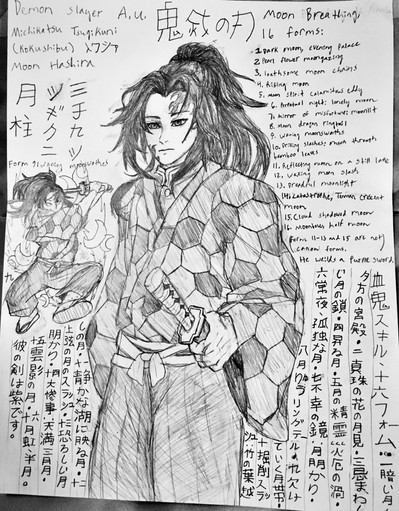 Demon slayer A.u.
鬼滅の刃
Michikatsu Tsugikuni
(Kokushibo)
Moon Hashira
月柱
ミチカツ
ツギクニ
Moon Breathing
16 forms:
1. Dark moon, evening palace
2. Pearl flower moongazing
3. Loathsome moon chains
4. Rising moon
5. Moon spirit calamitous eddy
6. Perpetual night: lonely moon
7. Mirror of misfortune: moonlit
8. Moon dragon ringtail
9. Waning moonswaths
10. Drilling slashes: moon through bamboo leaves
11. Reflecting moon on a still lake
12. Waxing moon slash
13. Dreadful moonlight
14. Catastrophe, Tenman crescent moon
15. Cloud shadowed moon
16. Moonbow: half moon
Forms 11-13 and 15 are not canon forms.
He wields a purple sword
Form 9: waning moonswaths
九
血鬼スキル・十六フォーム:一暗い月・
夕方の宮殿・二真珠の花の月見・三忌まわし
い月の鎖・四昇る月・五月の精霊災厄の渦・
六常夜・孤独な月・七不幸の鏡・月明かり・
八月りゅうリングテール・九欠け
ていく月帯・
十掘削スラ
ッシュ竹の葉越
しの月・十一静かな湖に映る月・十二
上弦の月のスラッシュ・十三恐ろしい月
明かり・十四大惨事・天満三日月・
十五雲影の月・十六月虹・半月・
彼の剣は紫です。